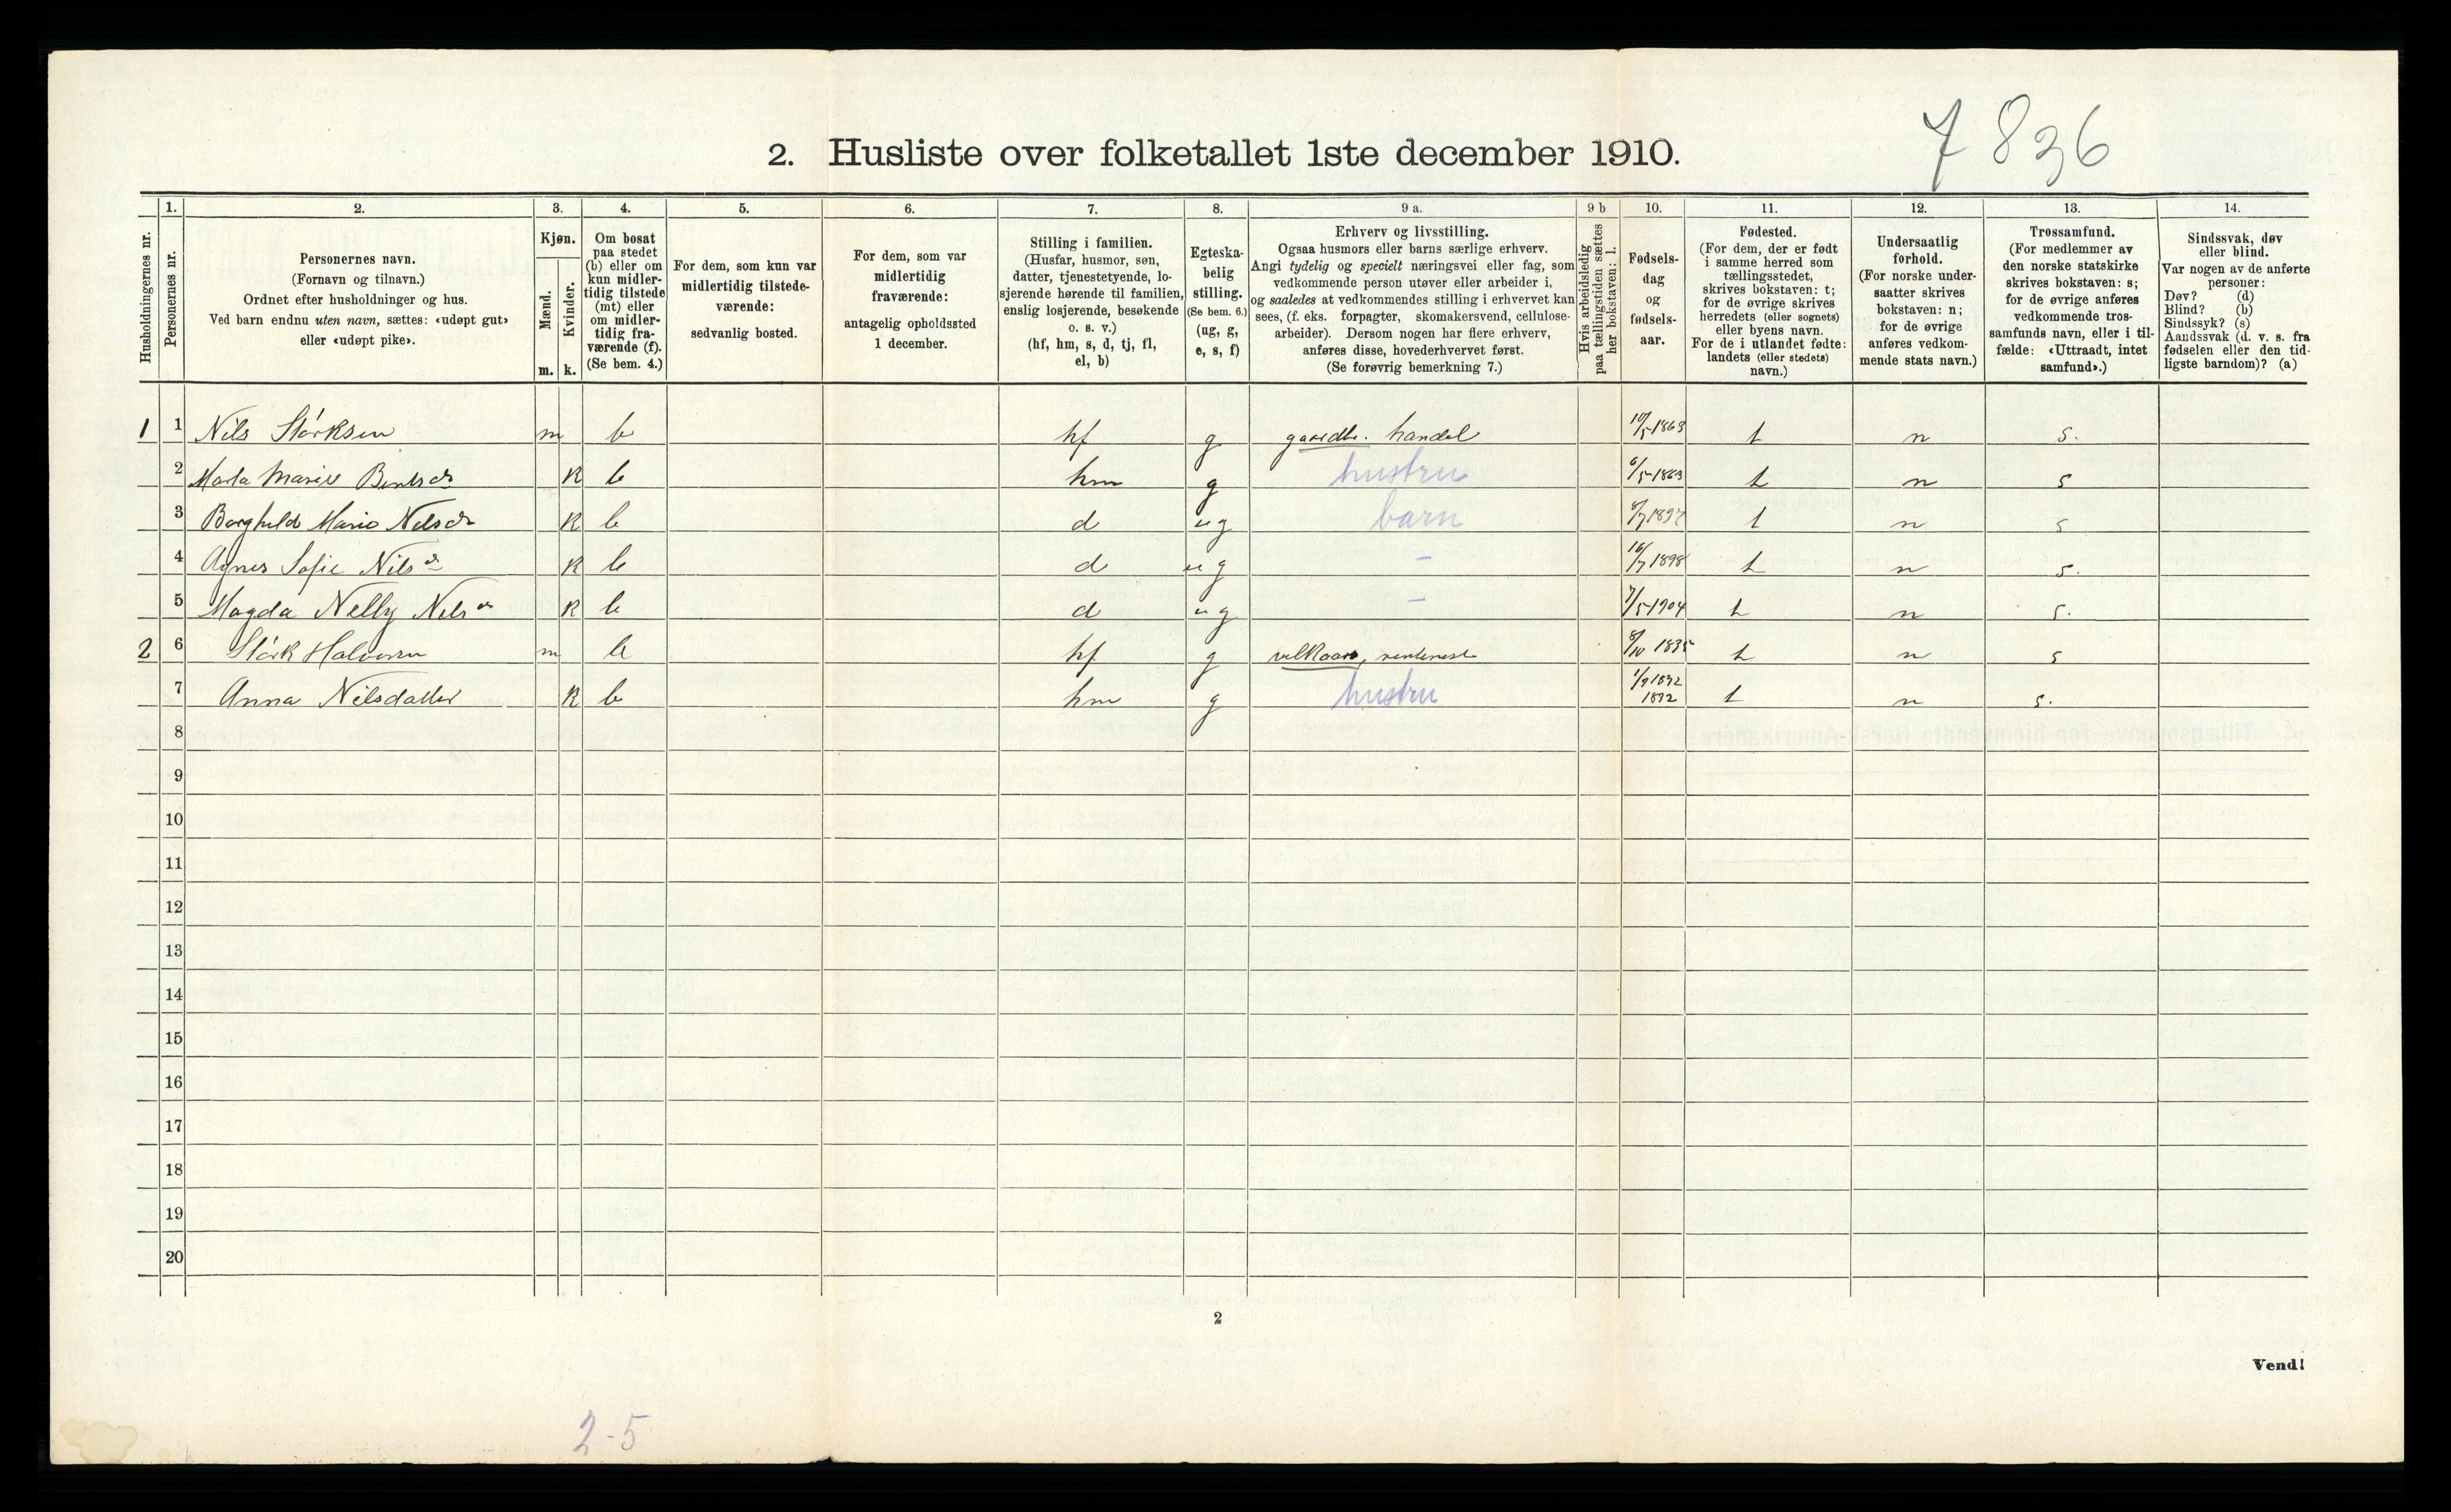 7 836
2. Husliste over folketallet 1ste december 1910.
Husholdningernes nr.
1. Personernes nr.
2. Personernes navn.
(Fornavn og tilnavn.)
Ordnet efter husholdninger og hus.
Ved barn endnu uten navn, sættes: «udøpt gut»
eller «udøpt pike».
3. Kjøn.
Mænd. m.
Kvinder. k.
4. Om bosat
paa stedet
(b) eller om
kun midler-
tidig tilstede
(mt) eller
om midler-
tidig fra-
værende (f).
(Se bem. 4.)
5. For dem, som kun var
midlertidig tilstede-
værende:
sedvanlig bosted.
6. For dem, som var
midlertidig
fraværende:
antagelig opholdssted
1 december.
7. Stilling i familien.
(Husfar, husmor, søn,
datter, tjenestetyende, lo-
sjerende hørende til familien,
enslig losjerende, besøkende
o. s. v.)
(hf, hm, s, d, tj, fl,
el, b)
8. Egteska-
belig
stilling.
(Se bem. 6.)
(ug, g,
e, s, f)
9 a. Erhverv og livsstilling.
Ogsaa husmors eller barns særlige erhverv.
Angi tydelig og specielt næringsvei eller fag, som
vedkommende person utøver eller arbeider i,
og saaledes at vedkommendes stilling i erhvervet kan
sees, (f. eks. forpagter, skomakersvend, cellulose-
arbeider). Dersom nogen har flere erhverv,
anføres disse, hovederhvervet først.
(Se forøvrig bemerkning 7.)
9 b Hvis arbeidsledig
paa tællingstiden sættes
her bokstaven: l.
10. Fødsels-
dag
og
fødsels-
aar.
11. Fødested.
(For dem, der er født
i samme herred som
tællingsstedet,
skrives bokstaven: t;
for de øvrige skrives
herredets (eller sognets)
eller byens navn.
For de i utlandet fødte:
landets (eller stedets)
navn.)
12. Undersaatlig
forhold.
(For norske under-
saatter skrives
bokstaven: n;
for de øvrige
anføres vedkom-
mende stats navn.)
13. Trossamfund.
(For medlemmer av
den norske statskirke
skrives bokstaven: s;
for de øvrige anføres
vedkommende tros-
samfunds navn, eller i til-
fælde: «Uttraadt, intet
samfund».)
14. Sindssvak, døv
eller blind.
Var nogen av de anførte
personer:
Døv? (d)
Blind? (b)
Sindssyk? (s)
Aandssvak (d. v. s. fra
fødselen eller den tid-
ligste barndom)? (a)
1 1 Nils Störksen m b hf g gaardbr. handel 1863 t n s.
2 Marie k b hm g hustru 6/5-1863 t n s
3 Borghild Marie Nilsdr k b d ug barn t n s
4 Agnes Sofie Nilsdr k b d ug - 16/7 1898 t n s.
5 Magda Nelly Nilsdr k b d ug - 7/5-1904 t n s.
2 6 Störk Halvorsen m b hf g 8/10 1835 t n s
7 Anna Nilsdatter k b hm g hustru 1/9 1832 1832 t n s.
8
9
10
11
12
13
14
15
16
17
18
19
20
2
Vend!
2-5